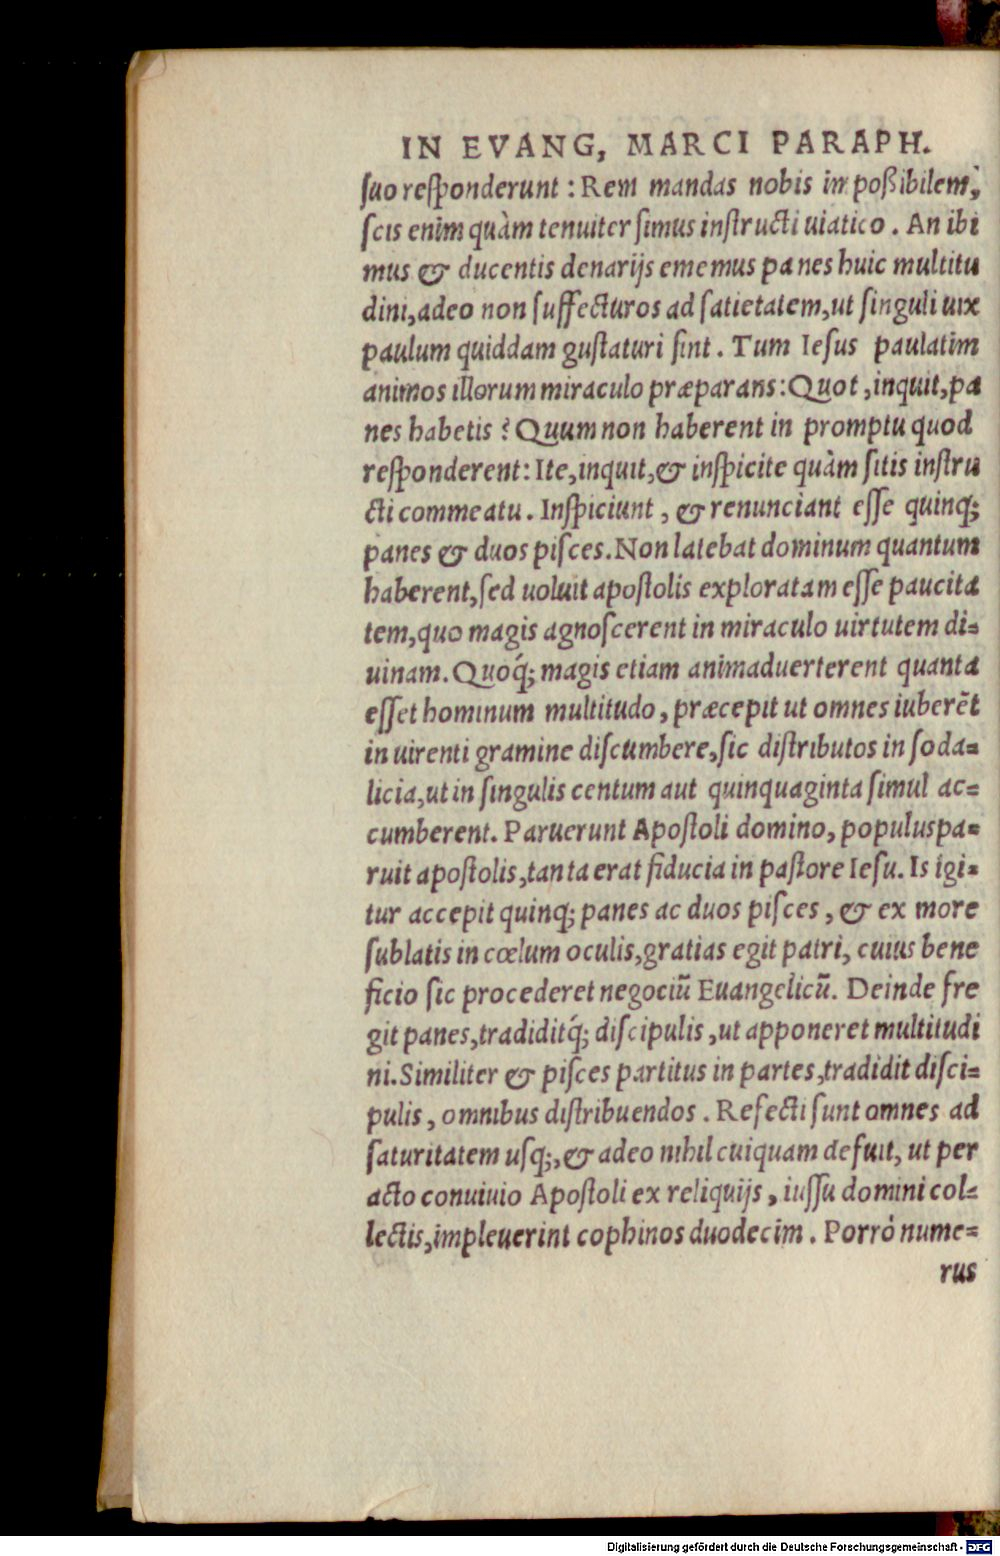 IN EVANG, MARCI PARAPH.
ſuo reſponderunt : Rem mandas nobis impoßibilem,
ſcis enim quàm tenuiter ſimus inſtructi uiatico . An ibi
mus & ducentis denarijs ememus panes huic multitu
dini, adeo non ſuffecturos ad ſatietatem, ut ſinguli uix
paulum quiddam guſtaturi ſint . Tum Ieſus paulatim
animos illorum miraculo præparans: Quot , inquit, pa
nes habetis ? Quum non haberent in promptu quod
reſponderent: Ite, inquit, & inſpicite quàm ſitis inſtru
cti commeatu . Inſpiciunt , & renunciant eſſe quinq;
panes & duos piſces. Non latebat dominum quantum
haberent, ſed uoluit apoſtolis exploratam eſſe paucita
tem, quo magis agnoſcerent in miraculo uirtutem di=
uinam. Quoq́; magis etiam animaduerterent quanta
eſſet hominum multitudo, præcepit ut omnes iuberēt
in uirenti gramine diſcumbere, ſic diſtributos in ſoda=
licia, ut in ſingulis centum aut quinquaginta ſimul ac=
cumberent. Paruerunt Apoſtoli domino, populus pa=
ruit apoſtolis, tanta erat fiducia in paſtore Ieſu. Is igi=
tur accepit quinq; panes ac duos piſces , & ex more
ſublatis in cœlum oculis, gratias egit patri, cuius bene
ficio ſic procederet negociū Euangelicū. Deinde fre
git panes, tradiditq́; diſcipulis , ut apponeret multitudi
ni. Similiter & piſces partitus in partes, tradidit diſci=
pulis , omnibus diſtribuendos . Refecti ſunt omnes ad
ſaturitatem uſq;, & adeo nihil cuiquam defuit, ut per
acto conuiuio Apoſtoli ex reliquijs , iuſſu domini col=
lectis, impleuerint cophinos duodecim . Porrò nume=
rus
Digitalisierung gefördert durch die Deutsche Forschungsgemeinschaft - DFG